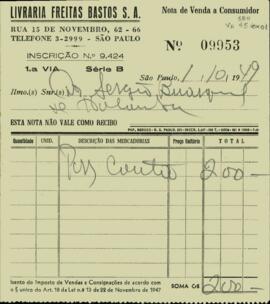 LIVRARIA FREITAS BASTOS S. A.
Nota de Venda a Consumidor
RUA 15 DE NOVEMBRO, 62 - 66
TELEFONE 3-2999 - SÃO PAULO
Nº 09953
INSCRIÇÃO N.º 9.424
1.a VIA Série B
São Paulo, 1/10/1949
Ilmo.(s) Snr.(s) Dr Sergio Buarque
de Holanda
ESTA NOTA NÃO VALE COMO RECIBO
Quantidade UNID. DESCRIÇÃO DAS MERCADORIAS Preço Unitário TOTAL
200-
SOMA Cr$ 200-
imento do Imposto de Vendas e Consignações de acordo com
o § unico do Art. 18 da Lei n.º 13 de 22 de Novembro de 1947